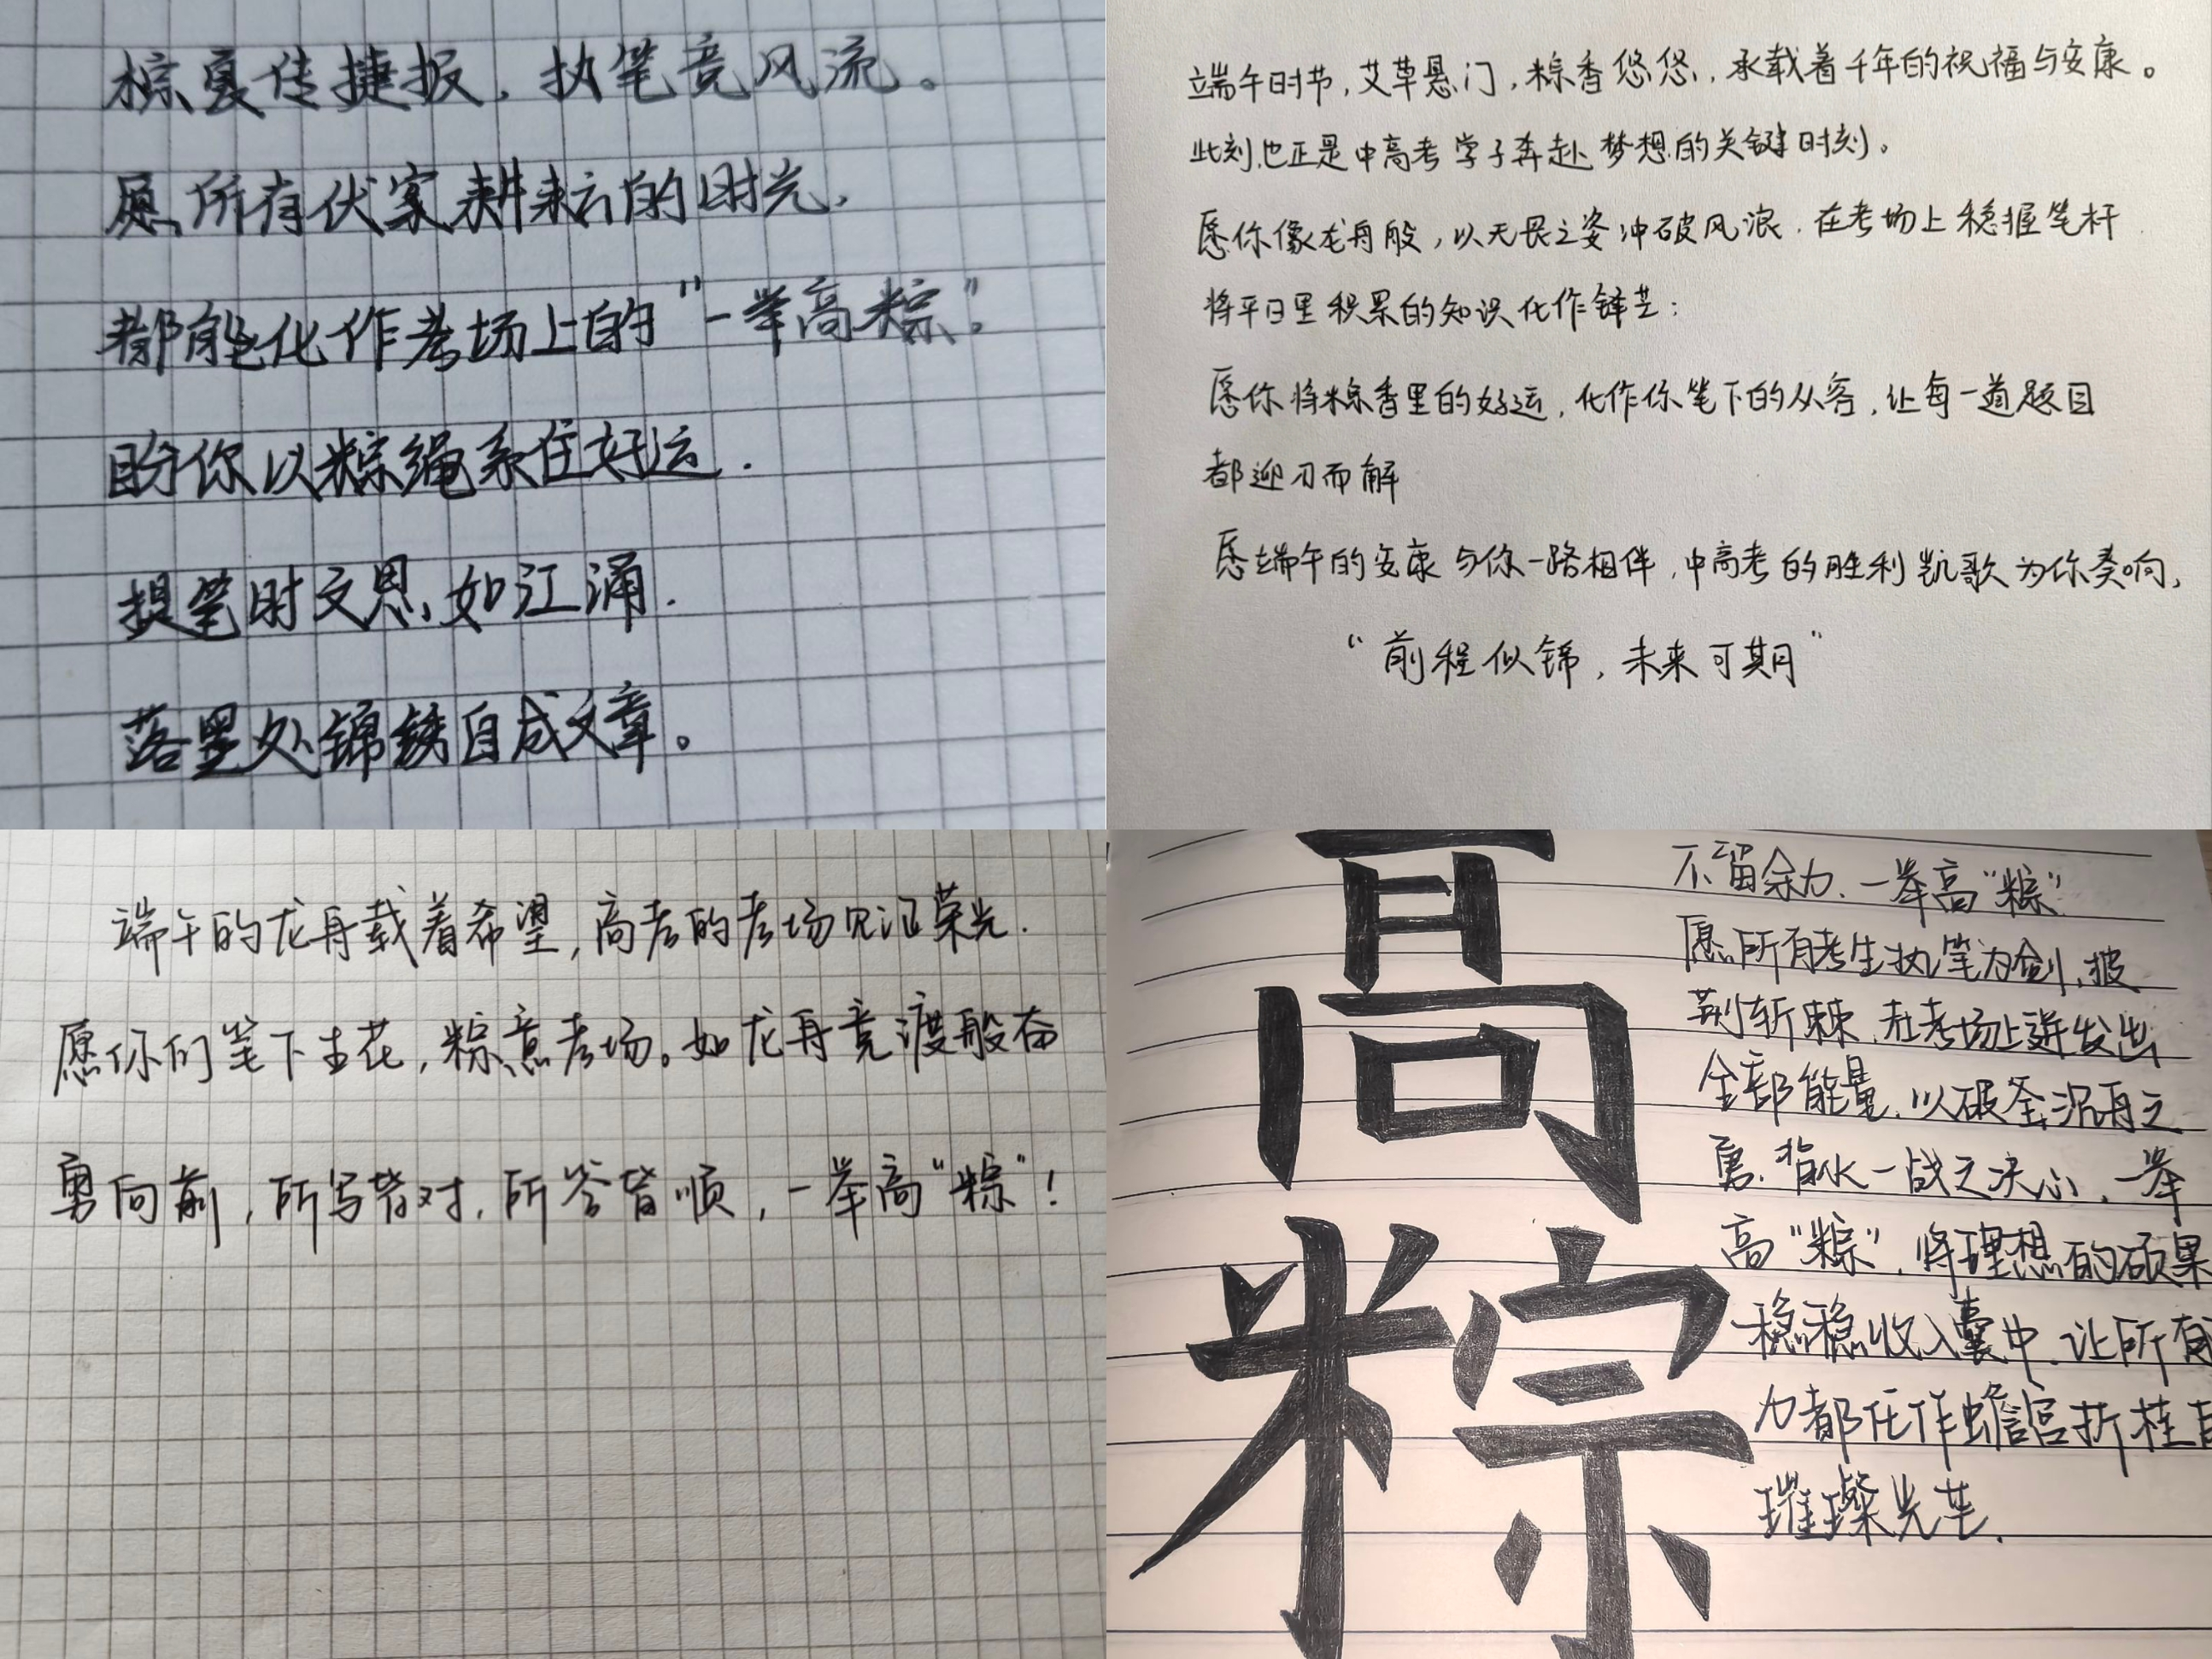 粽夏传捷报，执笔竞风流。
愿所有伏案耕耘的时光，
都能化作考场上的“一举高粽”。
盼你以粽绳系住好运．
提笔时文思如江涌．
落墨处锦绣自成文章。
端午时节，艾草悬门，粽香悠悠，承载着千年的祝福与安康。
此刻，也正是中高考学子奔赴梦想的关键时刻。
愿你像龙舟般，以无畏之姿冲破风浪，在考场上稳握笔杆
将平日里积累的知识化作锋芒；
愿你将粽香里的好运，化作你笔下的从容，让每一道题目
都迎刃而解
愿端午的安康与你一路相伴，中高考的胜利凯歌为你奏响，
“前程似锦，未来可期”
端午的龙舟载着希望，高考的考场见证荣光．
愿你们笔下生花，粽意考场。如龙舟竞渡般奋
勇向前，所写皆对，所答皆顺，一举高“粽”！
高
粽
不留余力，一举高“粽”
愿所有考生执笔为剑，披
荆斩棘，在考场上迸发出
全部能量，以破釜沉舟之
勇，背水一战之决心，一举
高“粽”，将理想的硕果
稳稳收入囊中，让所有
力都化作蟾宫折桂
璀璨光芒．